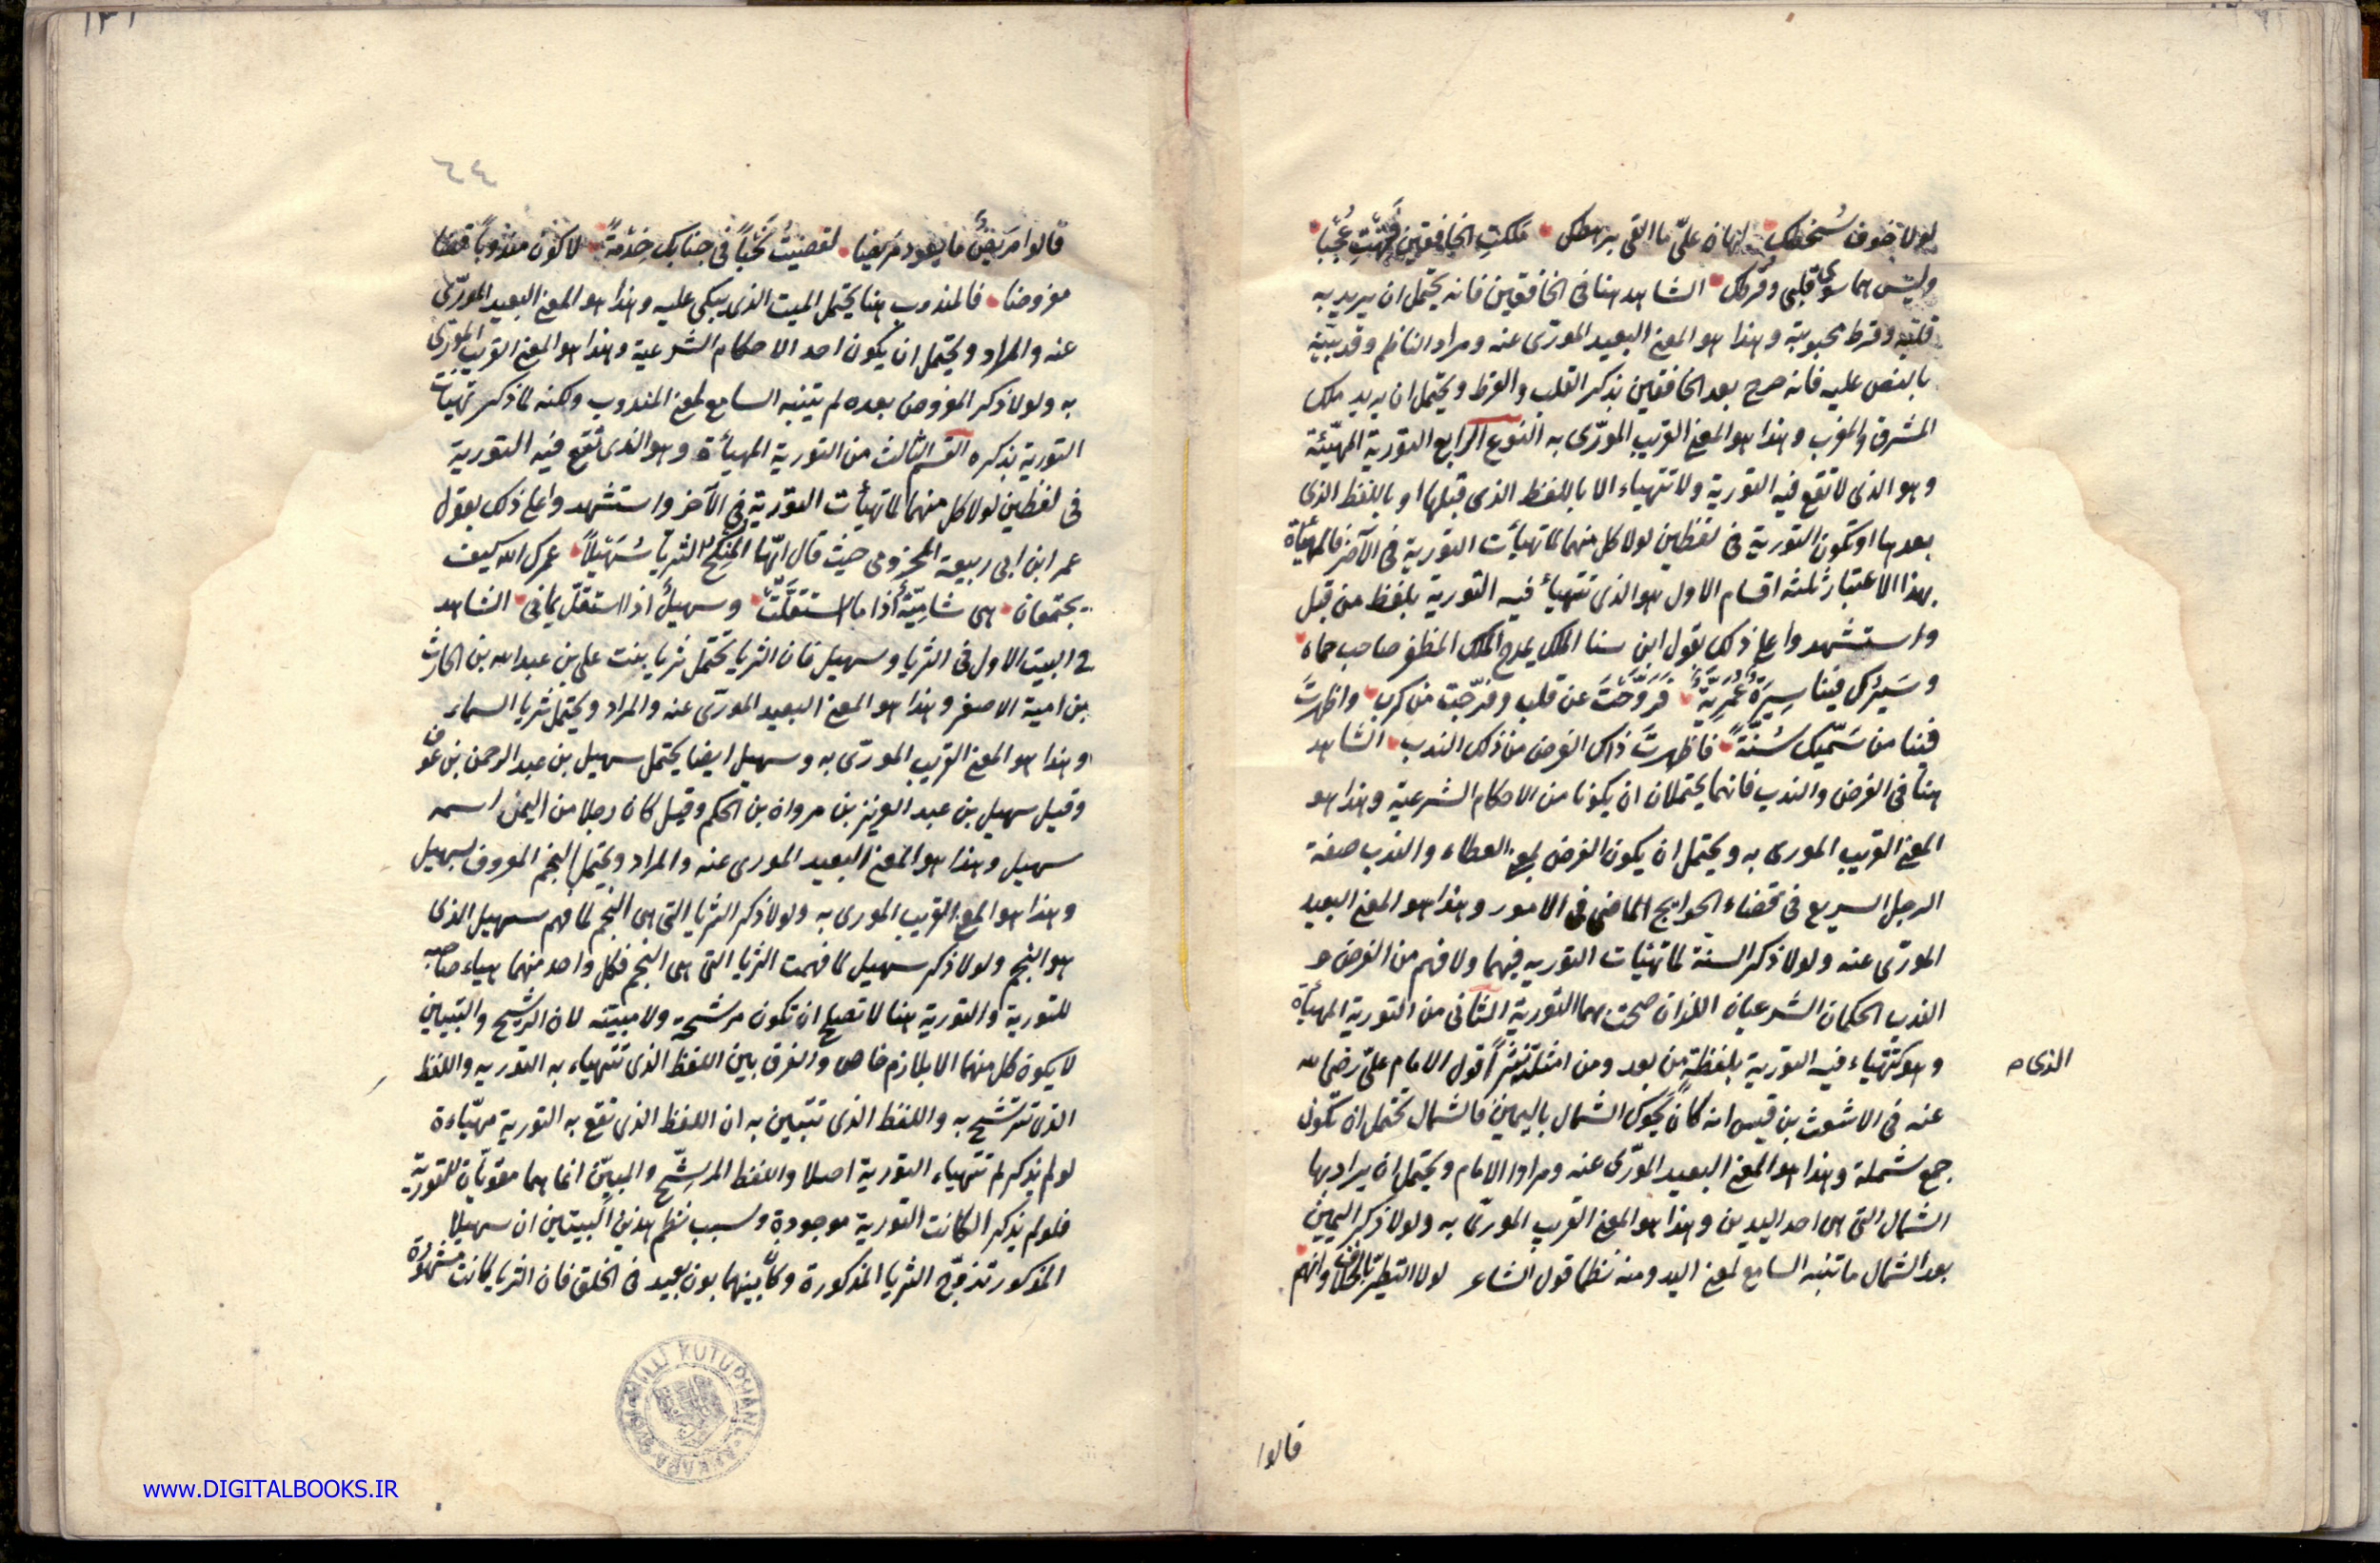 لولا خوف سُخطك لهان علىّ ما القى برهطك ملكتِ الخافقين فتهتِ عُجبًا
وليس هما سوى قلبى وقرطك الشاهد هنا فى الخافقين فانه يحتمل ان يريد به
قلبه وقرط محبوبته وهذا هو المعنى البعيد المورّى عنه ومراد الناظم وقد بيّنه
بالنص عليه فانه صرح بعد الخافقين بذكر القلب والقرط ويحتمل ان يريد ملك
المشرق والمغرب وهذا هو المعنى القريب المورّى به النوع الرابع التورية المهيّئة
وهو الذى لا تقع فيه التورية ولا تتهياء الا باللفظ الذى قبلها او باللفظ الذى
بعدها او تكون التورية فى لفظين لولا كل منهما لما تهيأت التورية فى الآخر فالمهيأة
بهذا الاعتبار ثلثة اقسام الاول هو الذى تتهيأ فيه التورية بلفظ من قبل
واستشهدوا على ذلك بقول ابن سنا الملك يمدح الملك المظفر صاحب حماه
وسَيرُك فينا سِيرَةٌ عُمَرِيّةٌ فَرَوَّحْتَ عن قلب وفرّجت من كرب واظهرتَ
فينا من سَمّيك سُنّةً فاظهرتَ ذاك الفرض من ذلك الندب الشاهد
هنا فى الفرض والندب فانهما يحتملان ان يكونا من الاحكام الشرعية وهذا هو
المعنى القريب المورى به ويحتمل ان يكون الفرض بمعنى العطاء والندب صفة
الرجل السريع فى قضاء الحوايج الماضى فى الامور وهذا هو المعنى البعيد
المورّى عنه ولولا ذكر السنة لما تهيئات التوريه فيهما ولا فهم من الفرض و
الندب الحكمان الشرعيان اللذان صحت بهما التورية الثانى من التورية المهيأة
وهو تتهياء فيه التورية بلفظة من بعد ومن امثلته نثرًا قول الامام علىّ رضى الله
الذى ه
عنه فى الاشعث بن قيس انه كان يحوك الشمال باليمين فالشمال يحتمل ان تكون
جمع شملة وهذا هو المعنى البعيد المورّى عنه ومراد الامام ويحتمل ان يراد بها
الشمال التى هى احد اليدين وهذا هو المعنى القريب المورىّ به ولولا ذكر اليمين
بعد الشمال ما تنبه السامع لمعنى اليد ومنه نظما قول الشاعر لولا التطيّر بالخلاف وانهم
قالوا
٦٤
قالوا مَريضٌ ما يعود مَريضا لقضيتُ نَحْبًا فى جنابك خِدْمةً لاكون مندوبًا قضا
مفروضا فالمندوب هنا يحتمل الميت الذى يبكى عليه وهذا هو المعنى البعيد المورّى
عنه والمراد ويحتمل ان يكون احد الاحكام الشرعية وهذا هو المعنى القريب المورّى
به ولولا ذكر المفروض بعده لم يتنبه السامع لمعنى المندوب ولكنه لما ذكر تهيئات
التورية بذكره القسم الثالث من التورية المهيأة وهو الذى تقع فيه التورية
فى لفظين لولا كل منهما لما تهيأت التورية فى الآخر واستشهدوا على ذلك بقول
عمر ابن ابى ربيعة المخزومى حيث قال ايّها المُنكِح الثريا سُهَيلًا عمرك الله كيف
يجتمعان هى شاميّةٌ اذا ما استقلَّتْ وسهيلٌ اذا استقلّ يمانى الشاهد
فى البيت الاول فى الثريا وسهيل فان الثريا تحتمل ثريا بنت على بن عبدالله بن الحارث
بن امية الاصغر وهذا هو المعنى البعيد المورّى عنه والمراد ويحتمل ثريا السماء
وهذا هو المعنى القريب المورّى به وسهيل ايضا يحتمل سهيل بن عبد الرحمن بن عوف
وقيل سهيل بن عبد العزيز بن مروان بن الحكم وقيل كان رجلا من اليمن اسمه
سهيل وهذا هو المعنى البعيد المورى عنه والمراد ويحتمل النجم المعروف بسهيل
وهذا هو المعنى القريب المورى به ولولا ذكر الثريا التى هى النجم لما فهم سهيل الذى
هو النجم ولولا ذكر سهيل لما فهمت الثريا التى هى النجم فكل واحد منهما هياء صاحبه
للتورية والتورية هنا لا تصلح ان تكون مرشحة ولا مبيّنه لان الترشيح والتبيين
لا يكون كل منهما الا بلازم خاص والفرق بين اللفظ الذى تتهياء به التوريه واللفظ
الذى تترشح به واللفظ الذى تتبين به ان اللفظ الذى تقع به التورية مهيّاءة
لو لم يذكر لم تتهياء التورية اصلا واللفظ المرشّح والمبيّن انما هما مقوّيان للتورية
فلو لم يذكرا لكانت التورية موجودة وسبب نظم هذين البيتين ان سهيلا
المذكور تزوّج الثريا المذكورة وكان بينهما بون بعيد فى الخلق فان الثريا كانت مشهورة
MILLI KUTUPHANE ANKARA
www.DIGITALBOOKS.IR